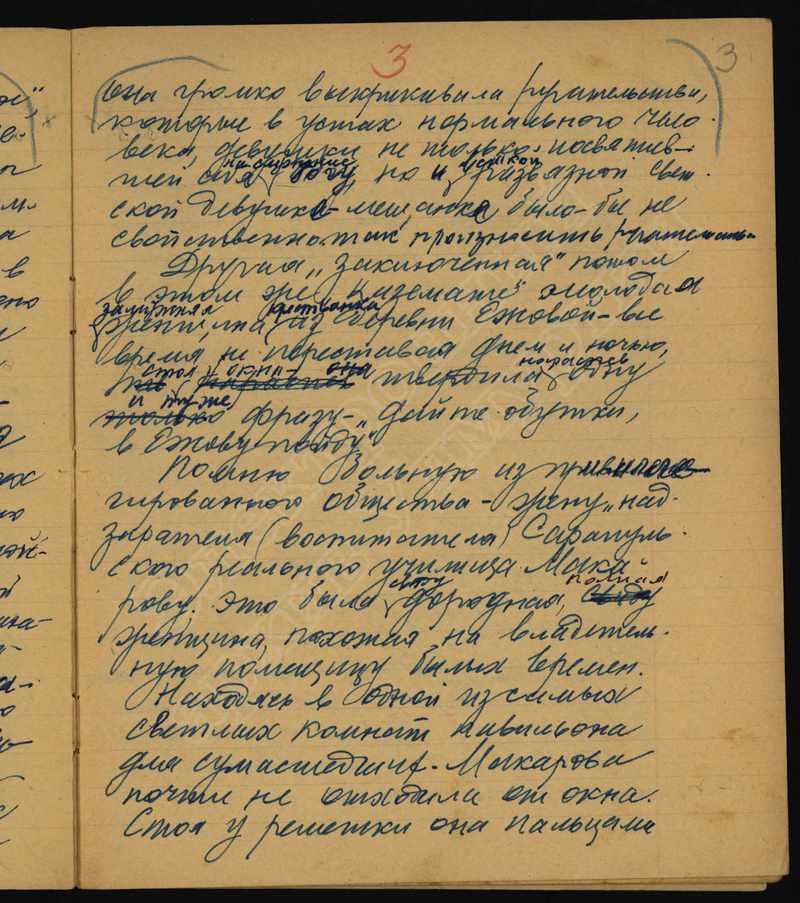 3
3
она громко выкрикивала ругательства,
которые в устах нормального чело-
века, девушки не только посвятив-
шей себя на служение богу, но и развязной свет-
ской девушке-мещанке было-бы не
свойственно так произносить ругательства
Другая „заключенная" потом
в этом же „каземате" молодая
замужняя крестьянка
женщина из деревни Ежовой-все
время не переставая днем и ночью,
стоя у окна- она твердила нараспев одну
и ту же
только фразу- „дайте обутки,
в Ежову пойду".
Помню больную из привиле-
гированного общества - жену „над-
зирателя (воспитателя) Сарапуль-
ского реального училища Мака-
рову. Это была дородная, полная
женщина, похожая на владетель-
ную помещицу былых времен.
Находясь в одной из самых
светлых комнат павильона
для сумасшедших. Макарова
почти не отходила от окна.
Стоя у решетки она пальцами